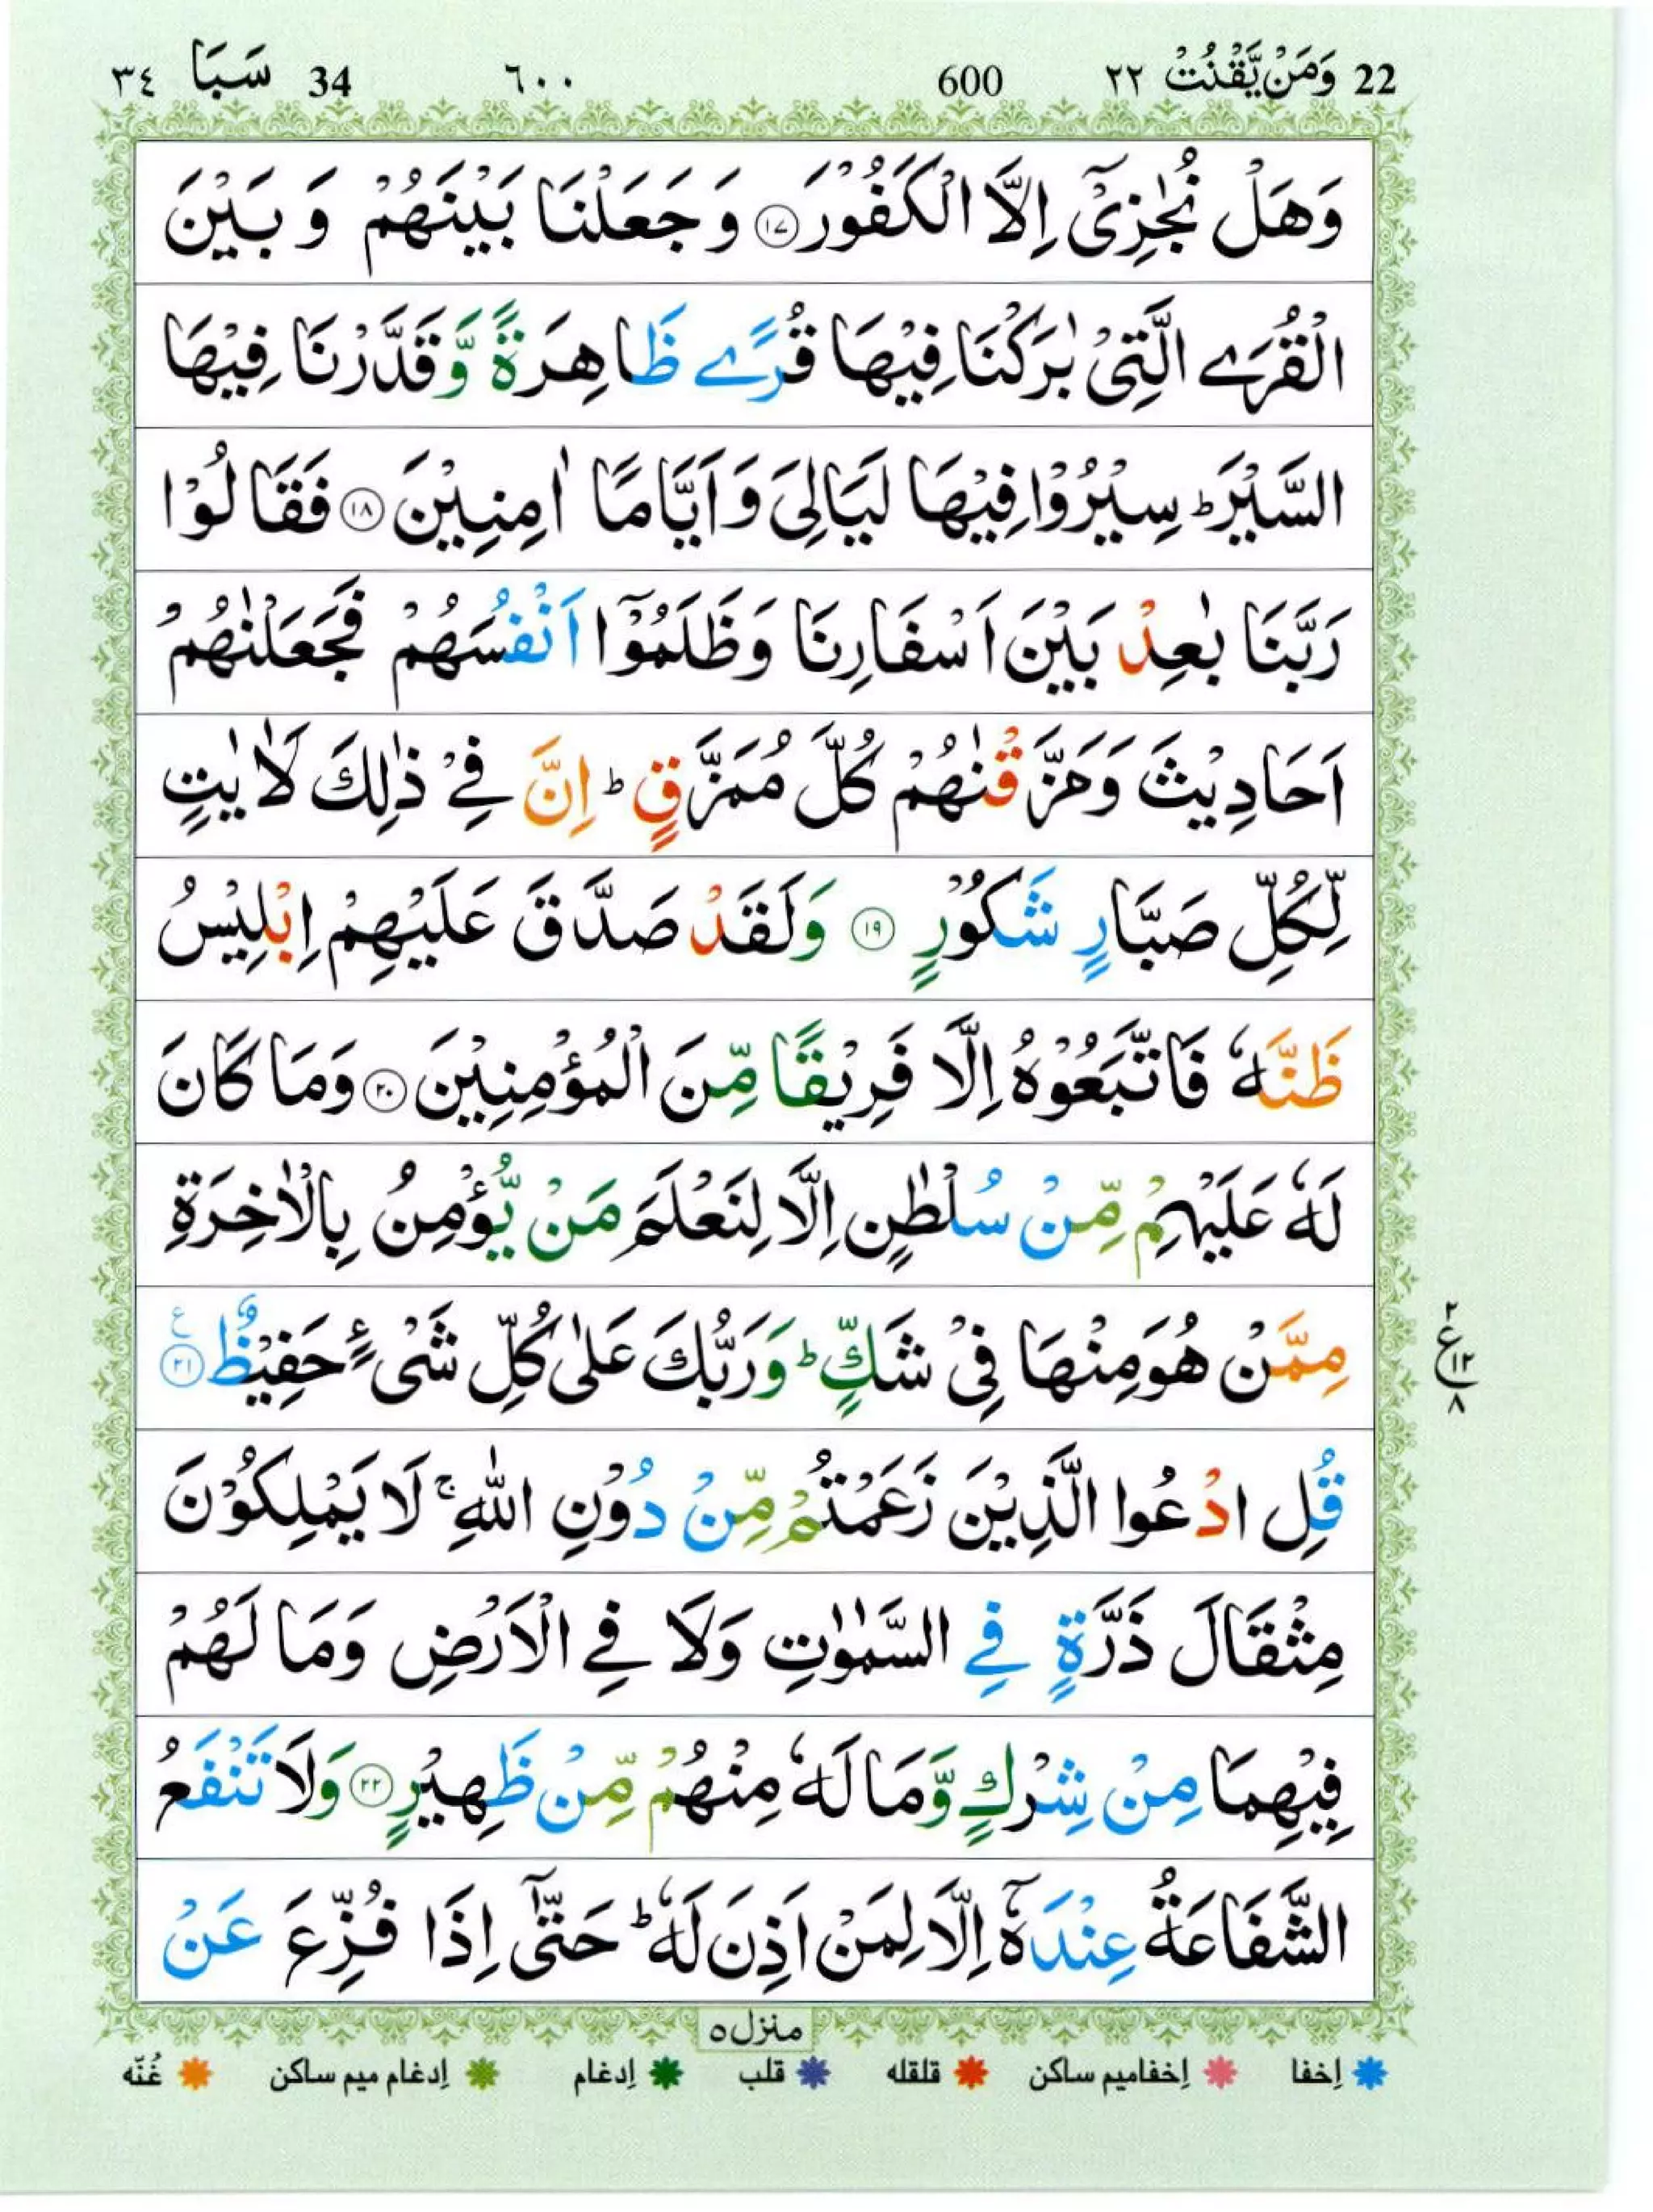 22 وَمَنْ يَّقْنُتْ ٢٢ 600 ٦٠٠ 34 سَبَا ٣٤
وَهَلْ نُجٰزِيْۤ اِلَّا الْكَفُوْرَ ١٧ وَ جَعَلْنَا بَيْنَهُمْ وَ بَيْنَ
الْقُرَے الَّتِيْ بٰرَكْنَا فِيْهَا قُرًے ظَاهِرَةً وَّ قَدَّرْنَا فِيْهَا
السَّيْرَ ؕ سِيْرُوْا فِيْهَا لَيَالِيَ وَ اَيَّامًا اٰمِنِيْنَ ١٨ فَقَالُوْا
رَبَّنَا بٰعِدْ بَيْنَ اَسْفَارِنَا وَ ظَلَمُوْۤا اَنْفُسَهُمْ فَجَعَلْنٰهُمْ
اَحَادِيْثَ وَ مَزَّقْنٰهُمْ كُلَّ مُمَزَّقٍ ؕ اِنَّ فِےْ ذٰلِكَ لَاٰيٰتٍ
لِّكُلِّ صَبَّارٍ شَكُوْرٍ ١٩ وَ لَقَدْ صَدَّقَ عَلَيْهِمْ اِبْلِيْسُ
ظَنَّهٗ فَاتَّبَعُوْهُ اِلَّا فَرِيْقًا مِّنَ الْمُؤْمِنِيْنَ ٢٠ وَمَا كَانَ
لَهٗ عَلَيْهِمْ مِّنْ سُلْطٰنٍ اِلَّا لِنَعْلَمَ مَنْ يُّؤْمِنُ بِالْاٰخِرَةِ
مِمَّنْ هُوَ مِنْهَا فِيْ شَكٍّ ؕ وَ رَبُّكَ عَلٰى كُلِّ شَيْءٍ حَفِيْظٌ ٢١ ع
٢ ع ١٢ ٨
قُلِ ادْعُوا الَّذِيْنَ زَعَمْتُمْ مِّنْ دُوْنِ اللّٰهِ ۚ لَا يَمْلِكُوْنَ
مِثْقَالَ ذَرَّةٍ فِے السَّمٰوٰتِ وَلَا فِے الْاَرْضِ وَمَا لَهُمْ
فِيْهِمَا مِنْ شِرْكٍ وَّمَا لَهٗ مِنْهُمْ مِّنْ ظَهِيْرٍ ٢٢ وَلَا تَنْفَعُ
الشَّفَاعَةُ عِنْدَهٗۤ اِلَّا لِمَنْ اَذِنَ لَهٗ ؕ حَتّٰۤى اِذَا فُزِّعَ عَنْ
منزل ٥
اِخفا اِخفامیم ساکن قلقله قلب اِدغام اِدغام میم ساکن غُنّه